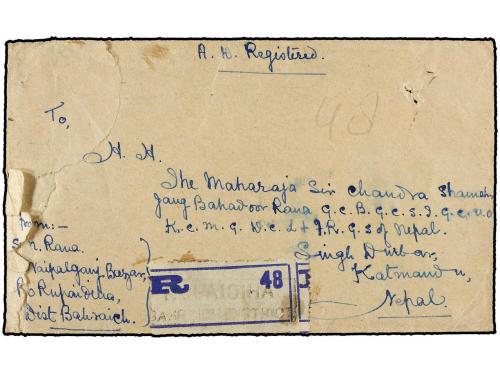 A. D. Registered.
48
To,
H. H.
The Maharaja Sir Chandra Shamsher
Jang Bahadoor Rana G.C.B. G.C.S.I. G.C.V.O
K.C.M.G. D.C.L. F.R.G.S of Nepal.
Singh Durbar,
Katmandu,
Nepal.
From:-
S. N. Rana.
Naipalganj Bazar,
P.O Rupaidiha,
Dist Bahraich.
R 48